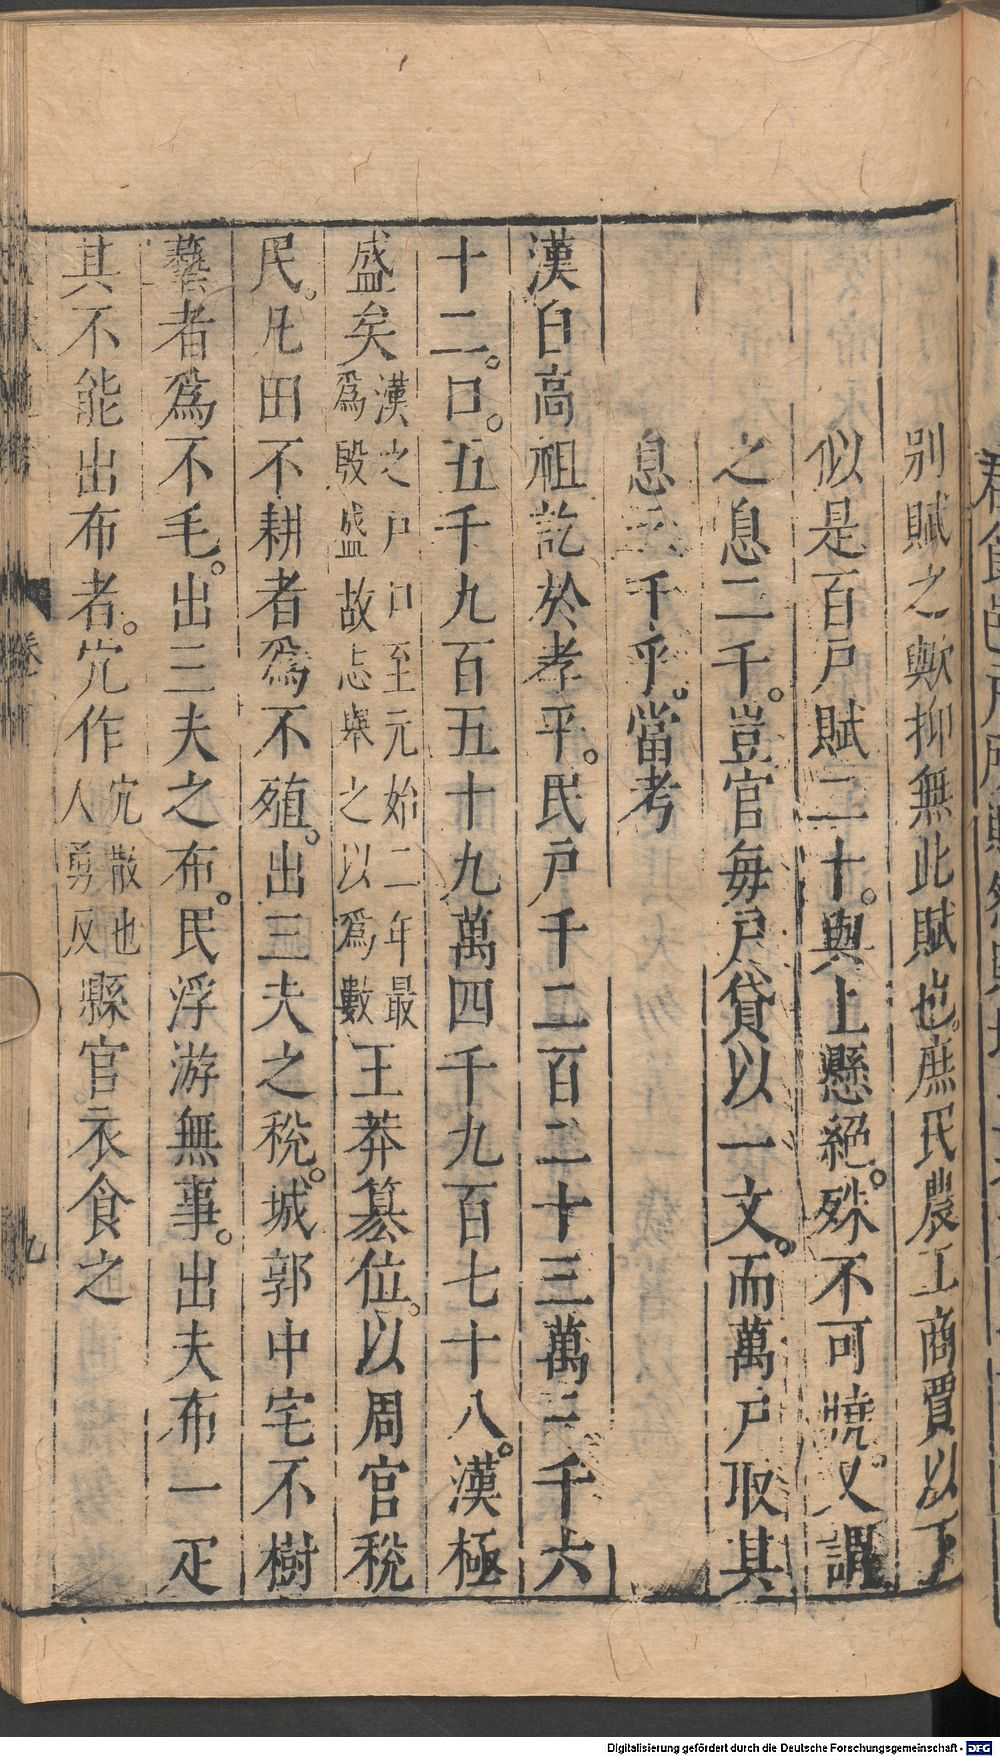 別賦之歟抑無此賦也庶民農工商賈以下
似是百戶賦二十。與上懸絕。殊不可曉。又謂
之息二千。豈官每戶貸以一文。而萬戶取其
息二千乎。當考
漢自高祖訖於孝平。民戶千二百二十三萬三千六
十二。口。五千九百五十九萬四千九百七十八。漢極
盛矣漢之戶口至元始二年最爲殷盛故志舉之以爲數王莽篡位。以周官稅
民。凡田不耕者爲不殖。出三夫之稅。城郭中宅不樹
藝者爲不毛。出三夫之布。民浮游無事。出夫布一疋
其不能出布者。宂作宂散也人勇反縣官。衣食之
Digitalisierung gefördert durch die Deutsche Forschungsgemeinschaft - DFG